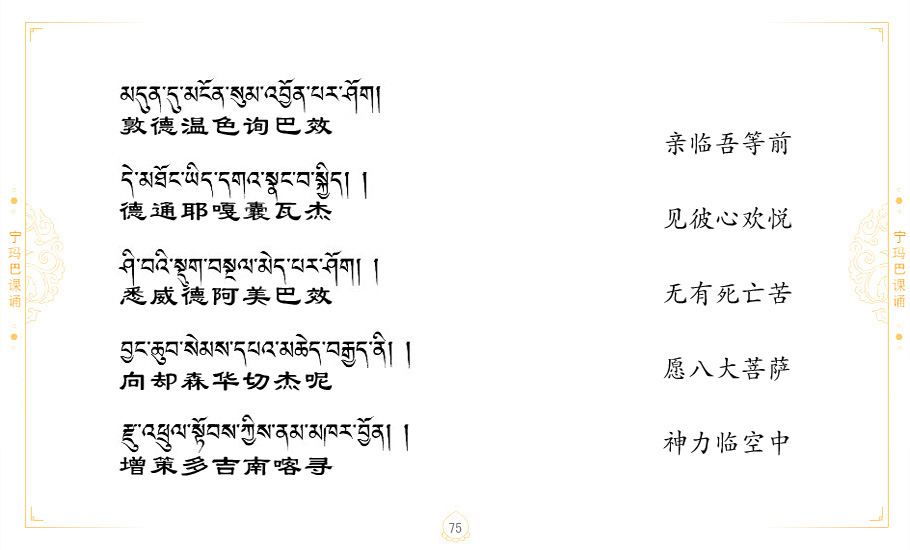 མདུན་དུ་མངོན་སུམ་འབྱོན་པར་ཤོག།
敦德温色询巴效
亲临吾等前
དེ་མཐོང་ཡིད་དགའ་སྣང་བ་སྐྱིད། །
德通耶嘎囊瓦杰
见彼心欢悦
ཤི་བའི་སྡུག་བསྔལ་མེད་པར་ཤོག། །
悉威德阿美巴效
无有死亡苦
བྱང་ཆུབ་སེམས་དཔའ་མཆེད་བརྒྱད་ནི། །
向却森华切杰呢
愿八大菩萨
རྫུ་འཕྲུལ་སྟོབས་ཀྱིས་ནམ་མཁར་བྱོན། །
增策多吉南喀寻
神力临空中
宁玛巴课诵
宁玛巴课诵
75